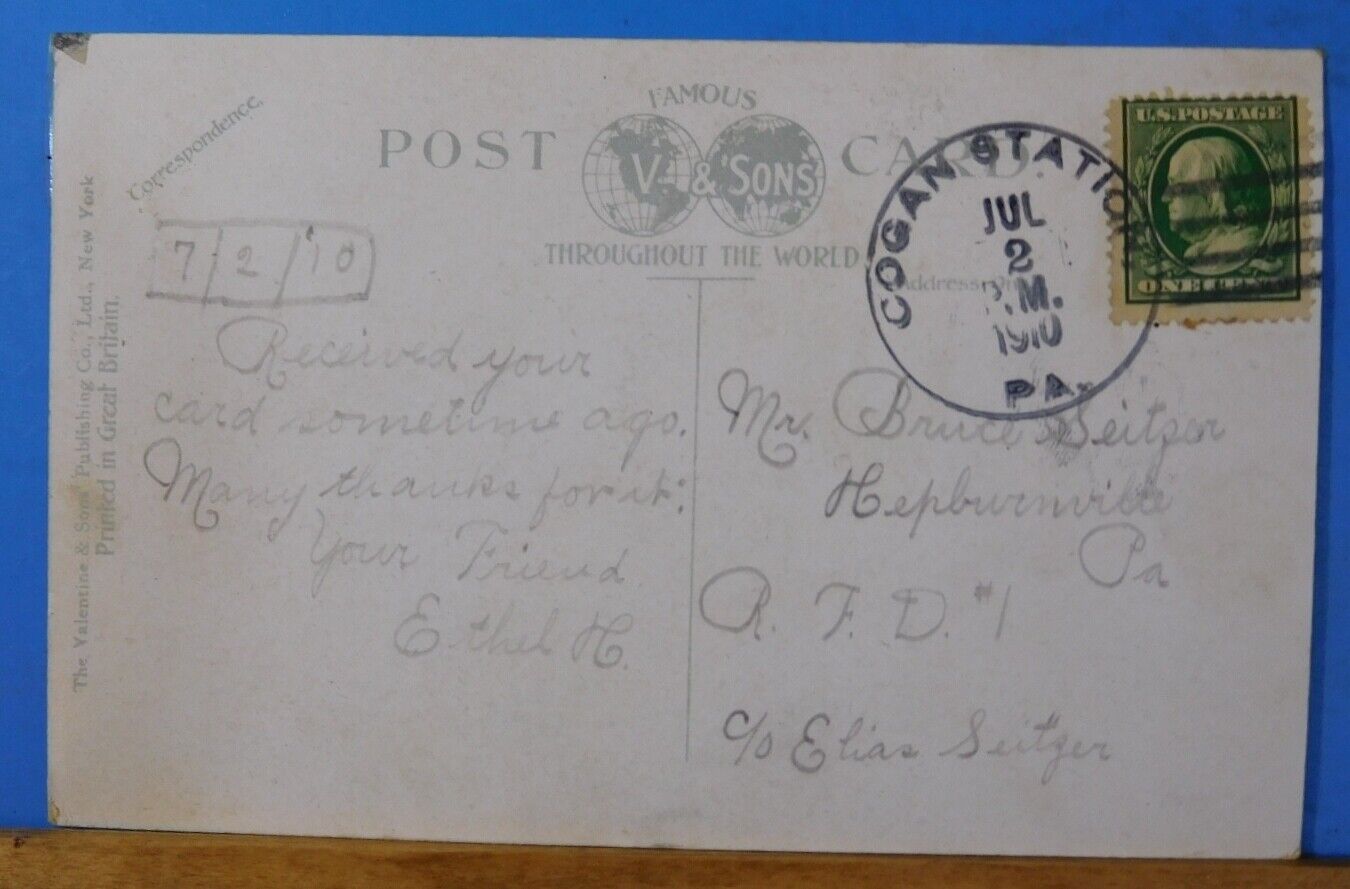 Correspondence.
FAMOUS
POST CARD.
V. & SONS
THROUGHOUT THE WORLD
The Valentine & Sons' Publishing Co., Ltd., New York
Printed in Great Britain.
7/2/'10
Received your
card sometime ago.
Many thanks for it.
Your Friend
Ethel H.
COGAN STATION
JUL
2
.M.
1910
PA.
U.S. POSTAGE
ONE CENT
Address
Mr. Bruce Seitzer
Hepburnville
Pa
R. F. D. #1
c/o Elias Seitzer